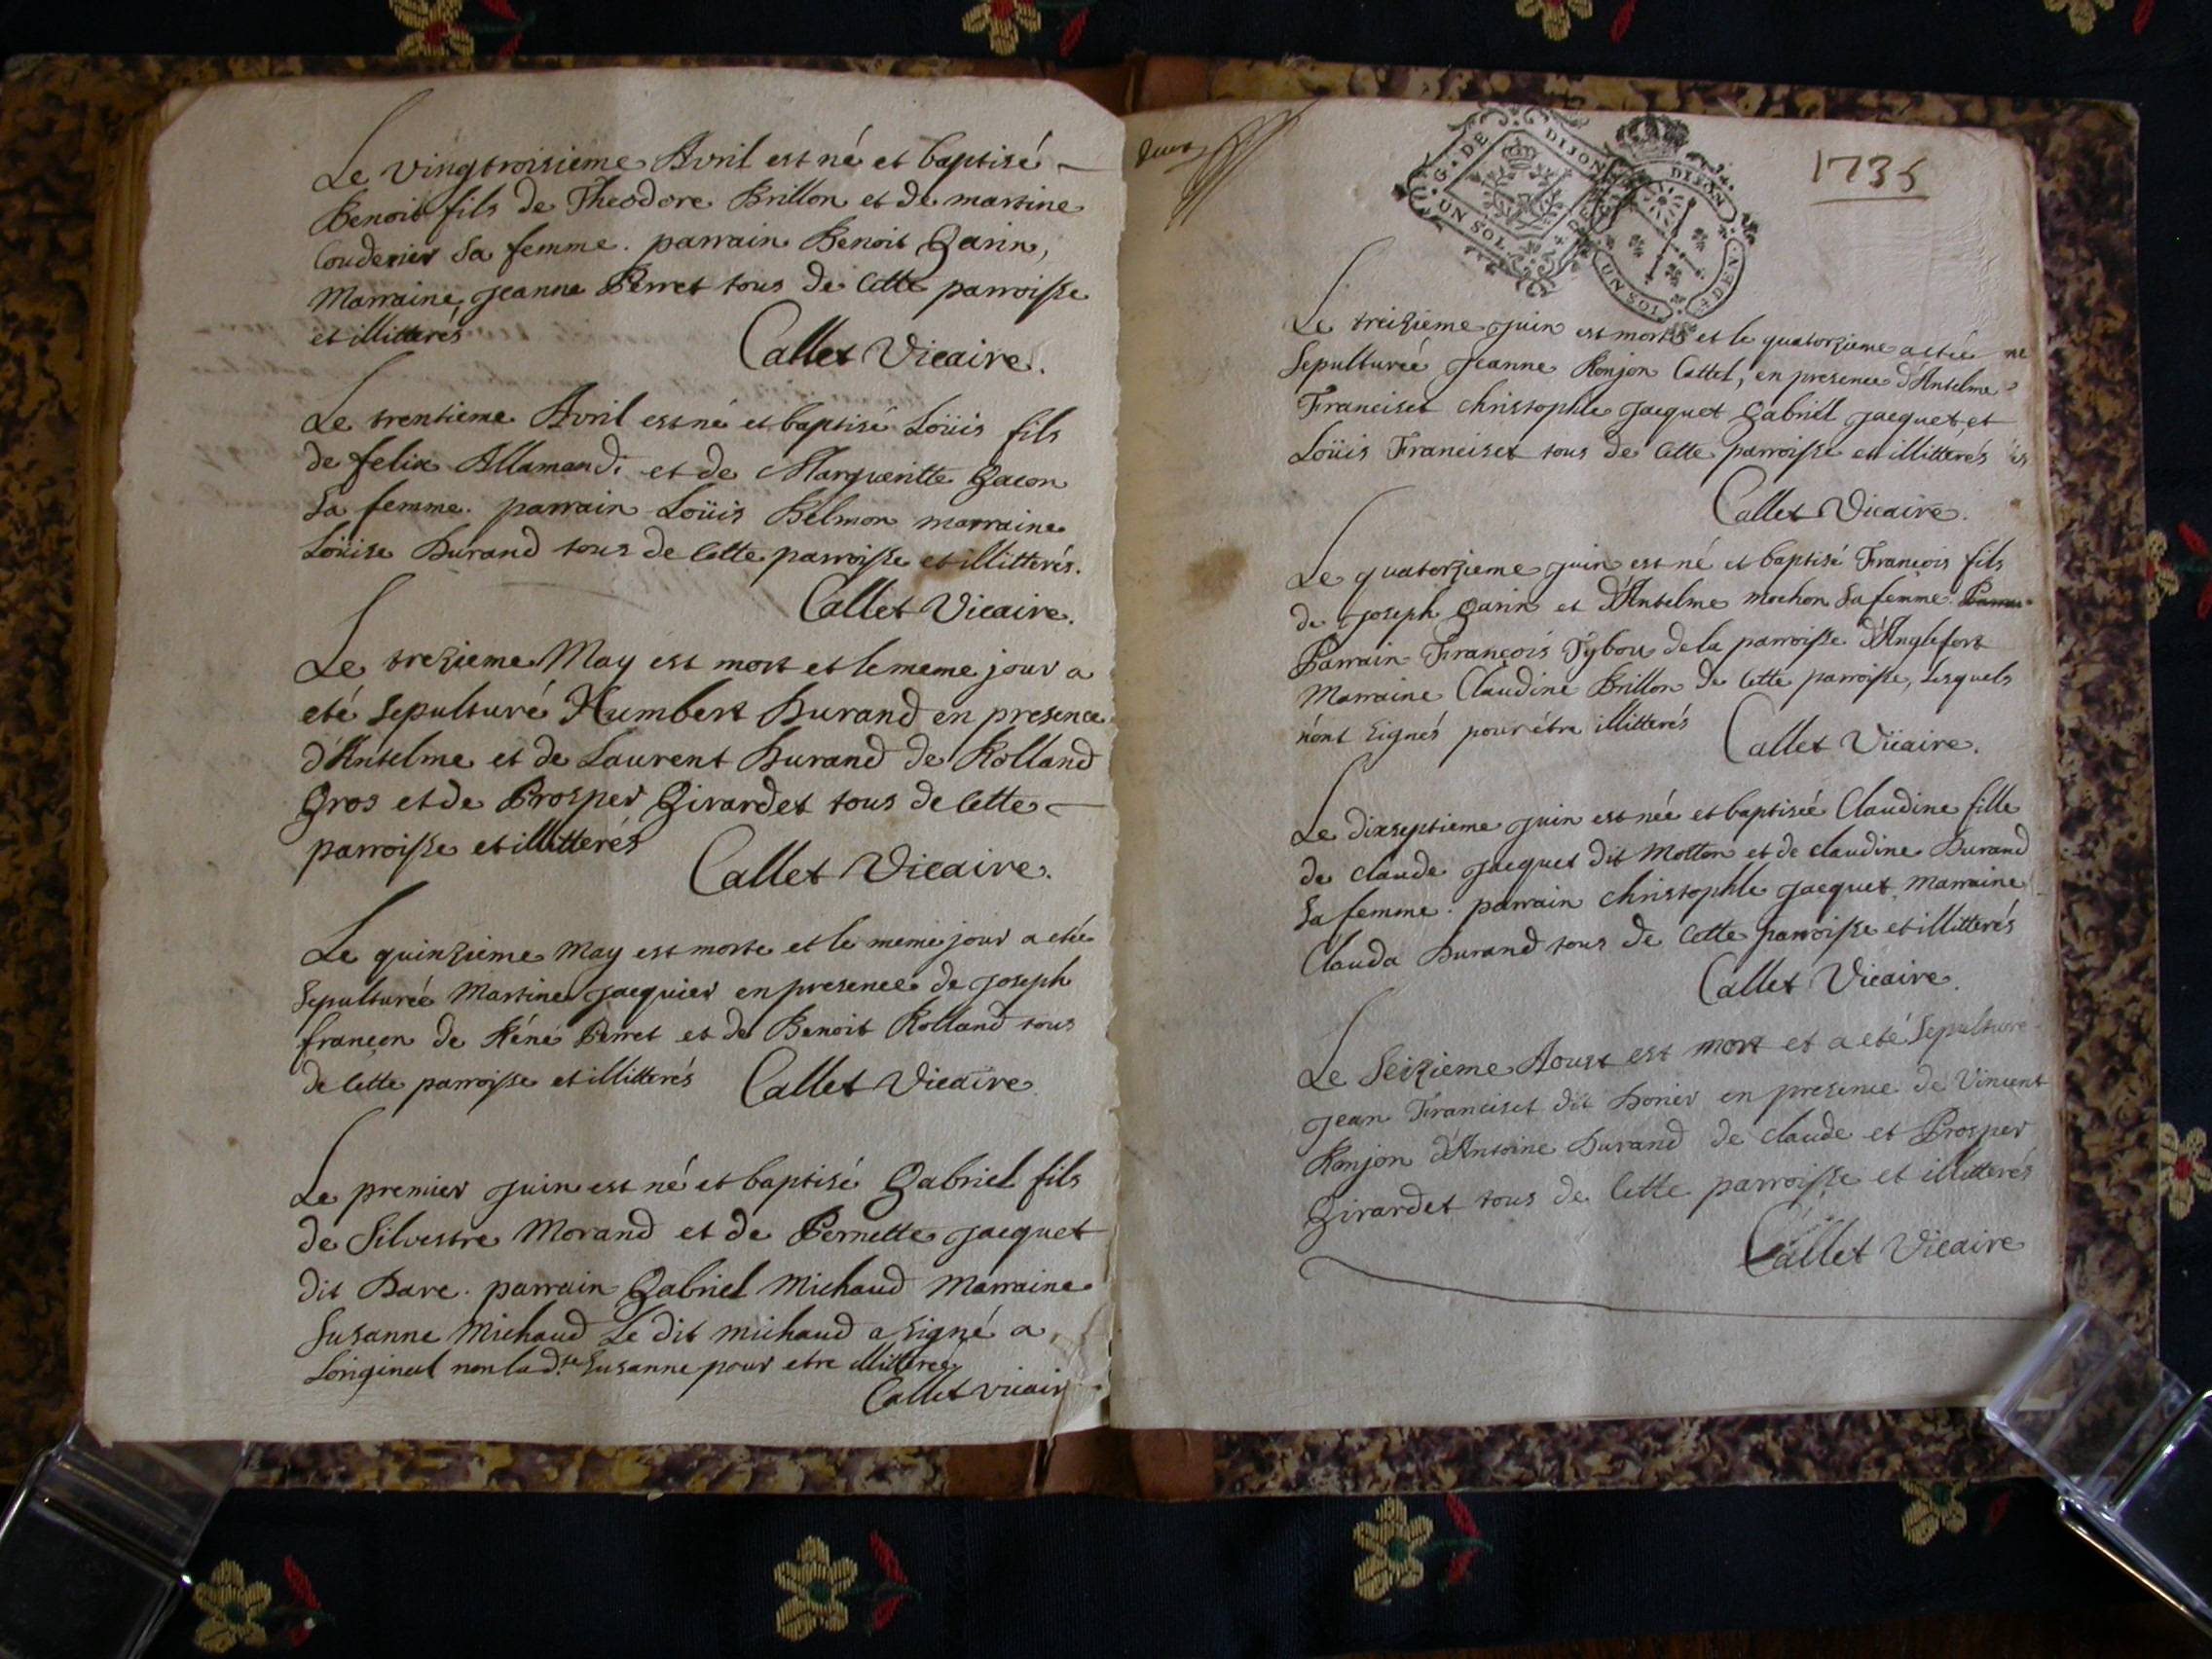 Le vingtroisieme Avril est né et baptisé
Benoit fils de Theodore Brillon et de martine
Couderier sa femme. parrain Benoit Garin,
Marraine, Jeanne Perret tous de cette parroisse
et illitterés
Callet Vicaire.
Le trentieme Avril est né et baptisé Loüis fils
de felix Allamand et de Margueritte Gacon
sa femme. parrain Loüis Belmon marraine
Loüise Durand tous de cette parroisse et illitterés.
Callet Vicaire.
Le trezieme May est mort et le meme jour a
eté sepulturé Humbert Durand en presence
d'Antelme et de Laurent Durand de Rolland
Gros et de Prosper Girardet tous de cette
parroisse et illitterés
Callet Vicaire.
Le quinzieme May est morte et le meme jour a etée
sepulturée Martine Jacquier en presence de Joseph
françon de Réné Perret et de Benoit Rolland tous
de cette parroisse et illitterés Callet Vicaire
Le premier Juin est né et baptisé Gabriel fils
de Silvestre Morand et de Pernette Jacquet
dit Dare. parrain Gabriel Michaud Marraine
Susanne Michaud Le dit michaud a signé a
Loriginal non la d.te Susanne pour etre illiteree
Callet vicair
1735
G. DE DIJON
UN SOL
DIJON
UN SOL 4 DEN
Le treizieme Juin est morte et le quatorzieme a etée
sepulturée Jeanne Ronjon Cattel, en presence d'Antelme
Franciset christophle Jacquet Gabriël Jacquet, et
Loüis Franciset tous de cette parroisse et illitterés
Callet Vicaire.
Le quatorzieme Juin est né et baptisé François fils
de Joseph Garin et d'Antelme mochon sa femme.
Parrain François Tybou de la parroisse d'Anglefort
Marraine Claudine Brillon de cette parroisse, Lesquels
n'ont signés pour être illitterés Callet Vicaire.
Le dixseptieme Juin est née et baptisée Claudine fille
de Claude Jacquet dit Motton et de claudine Durand
sa femme. parrain christophle Jacquet, Marraine
Clauda Durand tous de cette parroisse et illitterés
Callet Vicaire.
Le seizieme Aoust est mort et a eté sepulturé
Jean Franciset dit Donier en presence de Vincent
Ronjon d'Antoine Durand de claude et Prosper
Girardet tous de cette parroisse et illitterés
Callet Vicaire